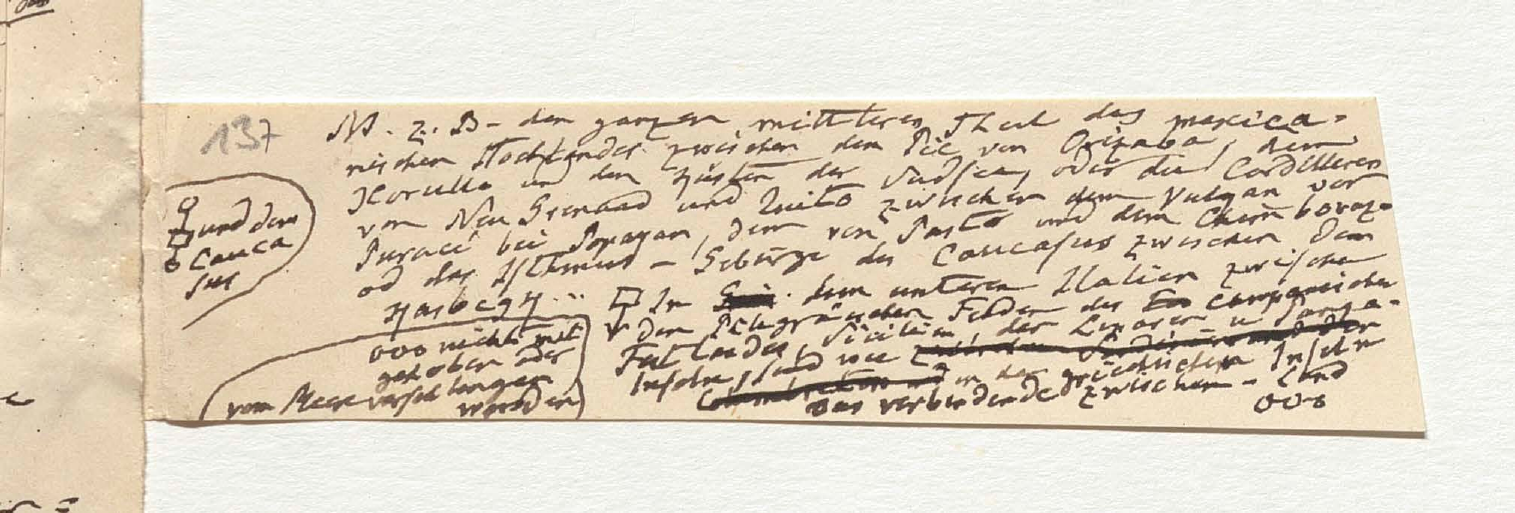 137
N. z. B. den ganzen mittleren Theil des mexica-
nischen Hochlandes zwischen dem Pic von Orizaba, dem
Jorullo und den Küsten der Südsee, oder die Cordilleren
von Neu Grenada und Quito zwischen dem Vulgan von
Puracé bei Popayan, dem von Pasto und dem Chimboraz-
od das Isthmus-Gebürge des Caucasus zwischen dem
Kasbegh
und dem
Cauca
sus
In dem unteren Italien zwischen
den Phlegräischen Feldern des campanischen
Festlandes, Sicilien, der Liparen u. Ponza-
Inseln, sind wie
in den griechischen Inseln
das verbindende Zwischen-Land
ooo
ooo nicht mit
gehoben oder
vom Meere verschlungen
worden